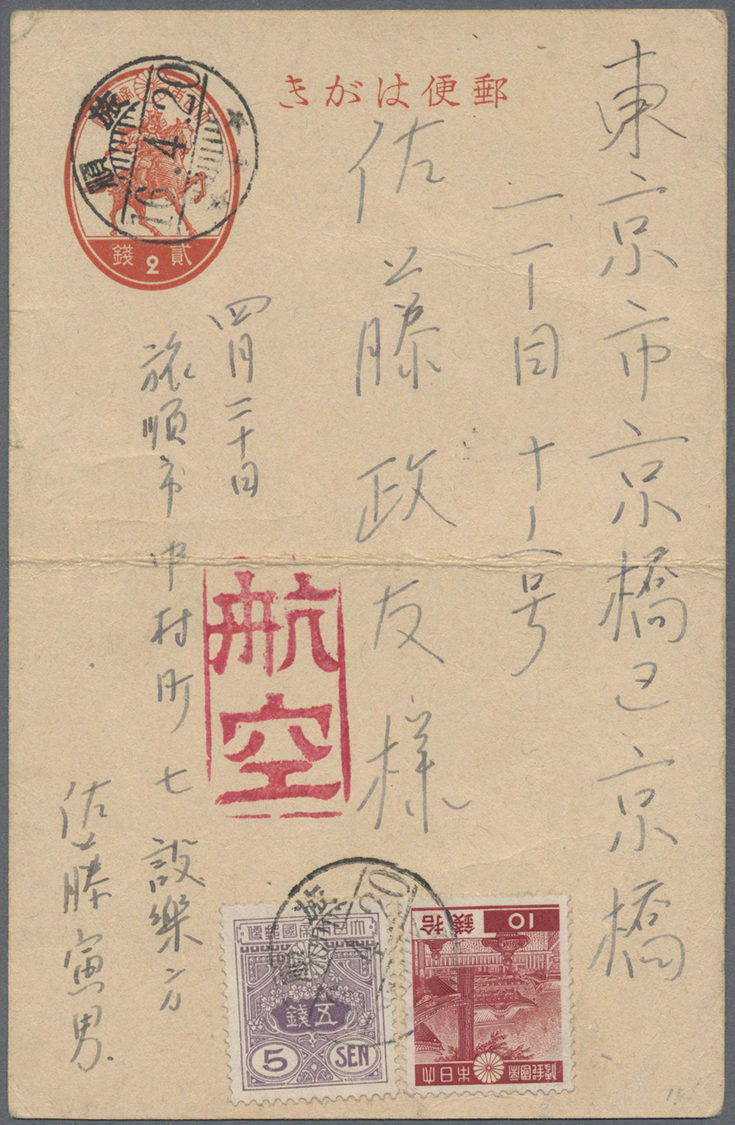 郵便はがき
貳錢
2
旅順
16.4.20
東京市京橋区京橋
一丁目十一号
佐藤政友様
四月二十日
旅順市中村町七設樂方
佐藤寅男
航空
大日本帝國郵便
五錢
5 SEN
20
10
拾錢
大日本帝國郵便